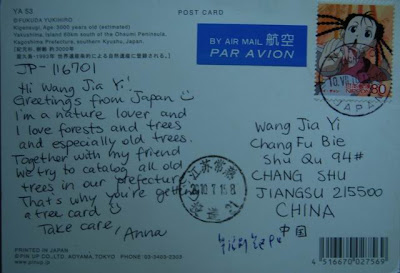 YA 53
POST CARD
DIFUKUDA YUKIHIRO
Kigensugi: Age: 3000 years old (estimated)
Yakushima, Island 60km south of the Ohsumi Peninsula,
Kagoshima Prefecture, southern Kyushu, Japan.
BY AIR MAIL 航空
PAR AVION
80
JP-116701
Hi Wang Jia Yi!
Greetings from Japan
I'm a nature lover and
I love forests and trees
and especially old trees.
Together with my friend
we try to catalog all old
trees in our prefecture
That's why you're getting
a tree card
Take care, Anna
江苏常熟
2010.7.15.8
Wang Jia Yi
Chang Fu Bie
Shu Qu 94#
CHANG SHU
JIANGSU 215500
CHINA
中国
PRINTED IN JAPAN
©PIN UP CO.,LTD. AOYAMA, TOKYO PHONE 03-3403-5303
4 516670 027569